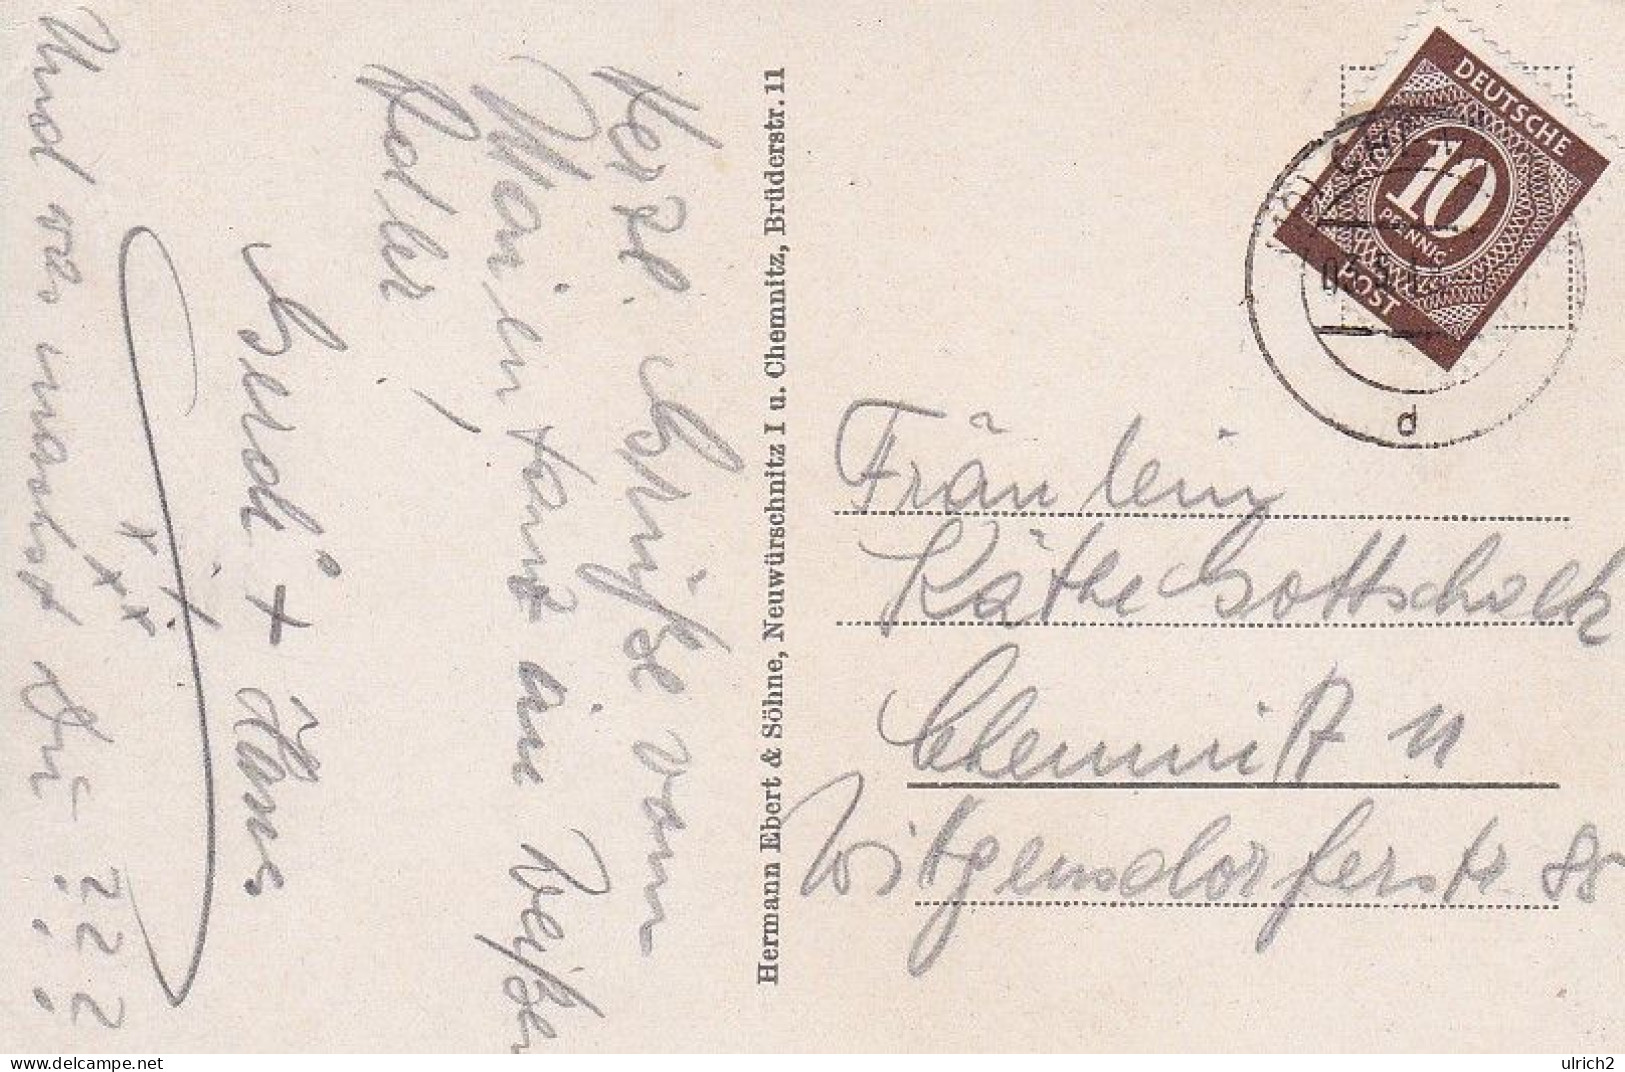 Herzl. Grüße vom
Maientanz im Weißen
Adler,
Gerdi + Hans
Und was machst Du - ???
Hermann Ebert & Söhne, Neuwürschnitz I u. Chemnitz, Brüderstr. 11
DEUTSCHE
10
PFENNIG
POST
d
Fräulein
Käthe Gottschalk
Chemnitz 11
Witgensdorferstr. 88
ulrich2